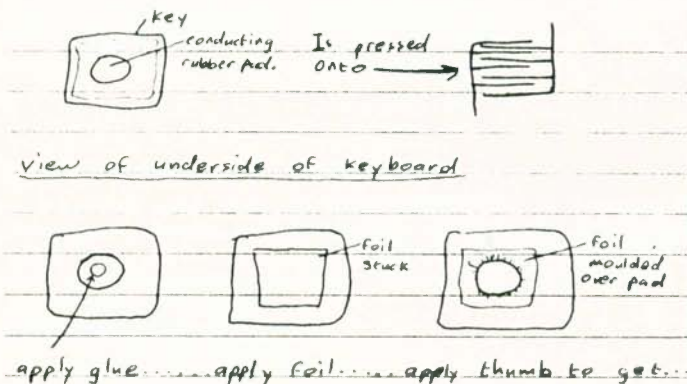 key
conducting
rubber pad.
Is pressed
onto
view of underside of keyboard
foil
stuck
foil
moulded
over pad
apply glue...... apply foil..... apply thumb to get...